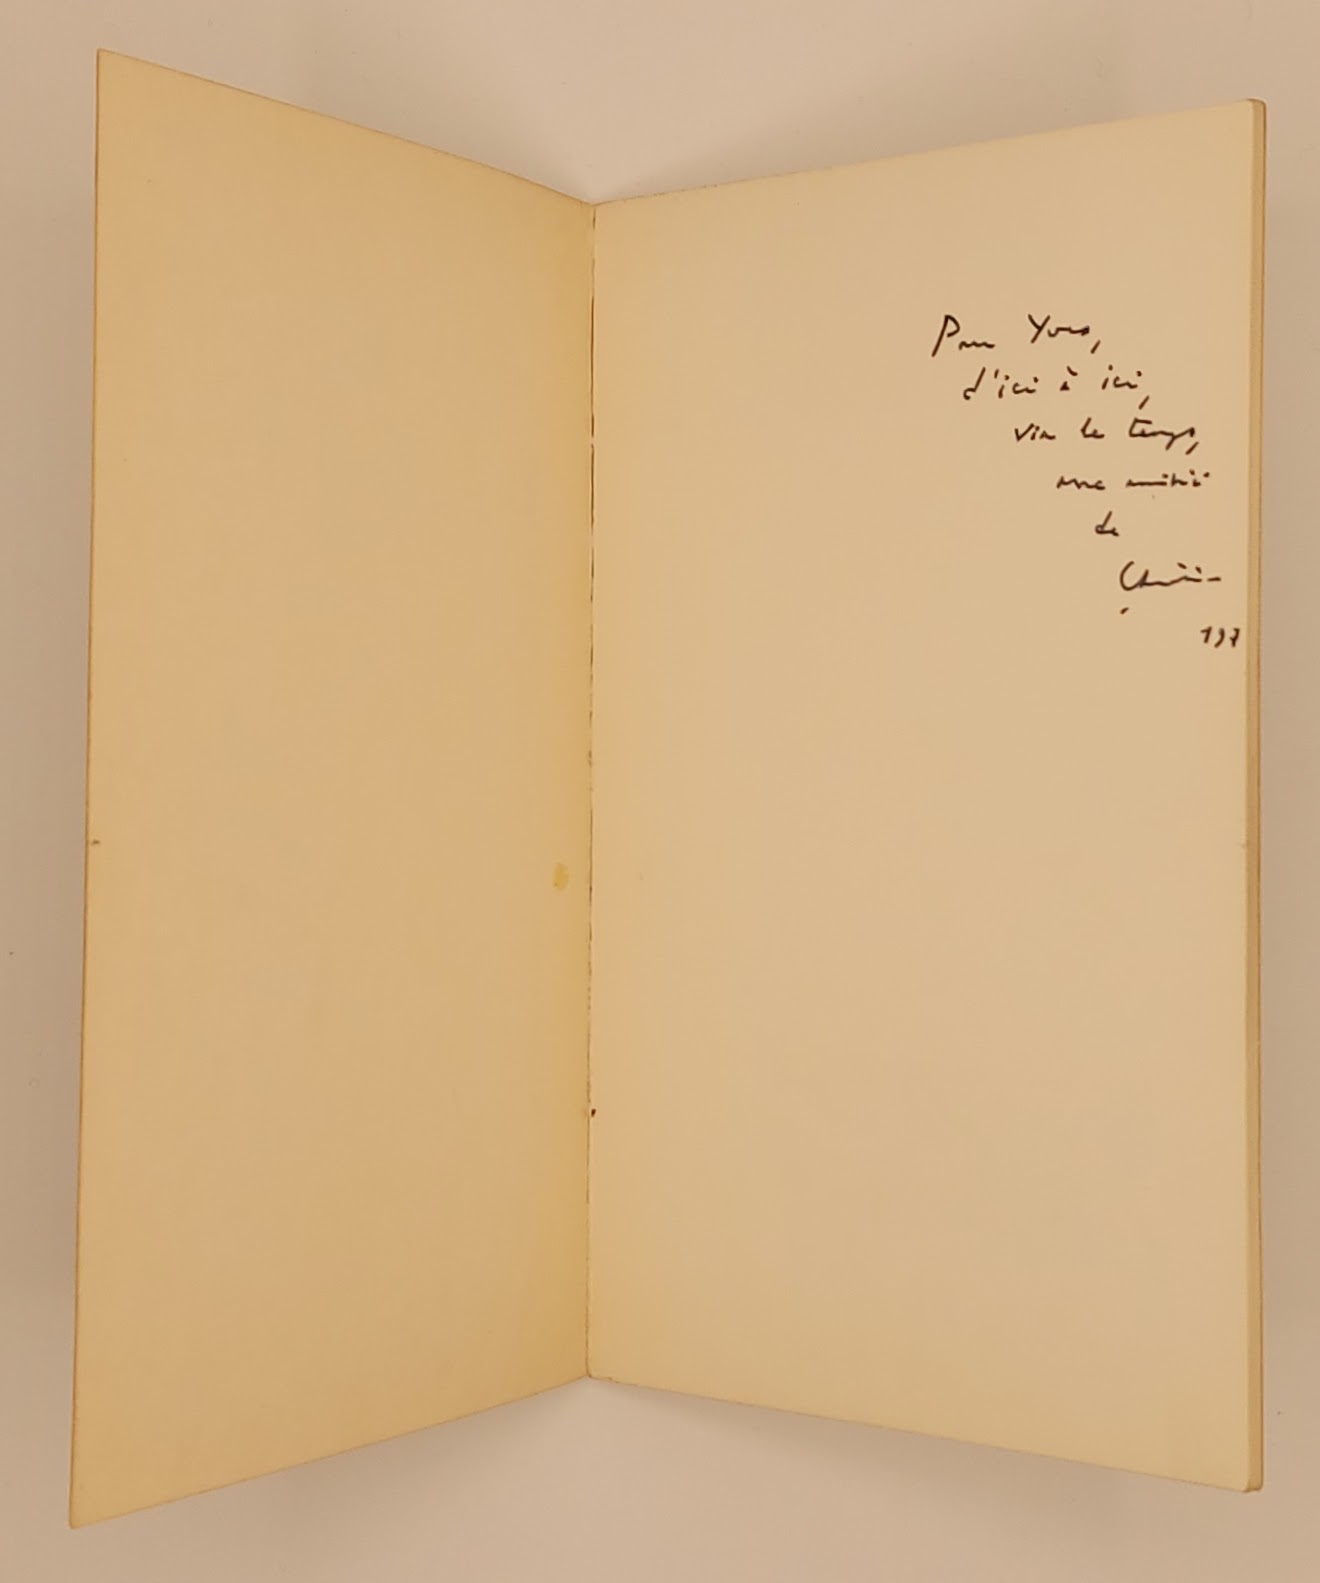 Pour Yves,
d'ici à ici,
via le temps,
une amitié
de
197